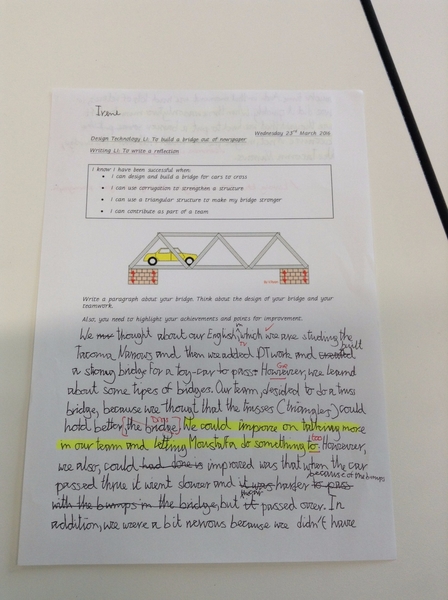 Irene
Wednesday 23rd March 2016
Design Technology LI: To build a bridge out of newspaper
Writing LI: To write a reflection
I know I have been successful when:
• I can design and build a bridge for cars to cross
• I can use corrugation to strengthen a structure
• I can use a triangular structure to make my bridge stronger
• I can contribute as part of a team
Write a paragraph about your bridge. Think about the design of your bridge and your
teamwork.
Also, you need to highlight your achievements and points for improvement.
We thought about our English, which we are studying the
built
Tacoma Narrows and then we added DT work and created
a strong bridge for a toy car to pass. However, we learnd
about some types of bridges. Our team, desided to do a truss
bridge, because we thougt that the trusses (triangles) could
hold better the bridge. We could improve on talking more
too
in our team and letting Moustafa do something to. However,
we also, could had done is improved was that when the car
because of the bumps
passed thrue it went slower and it was harder to pass
with the bumps in the bridge, but it passed over. In
addition, we were a bit nervous because we didn't have